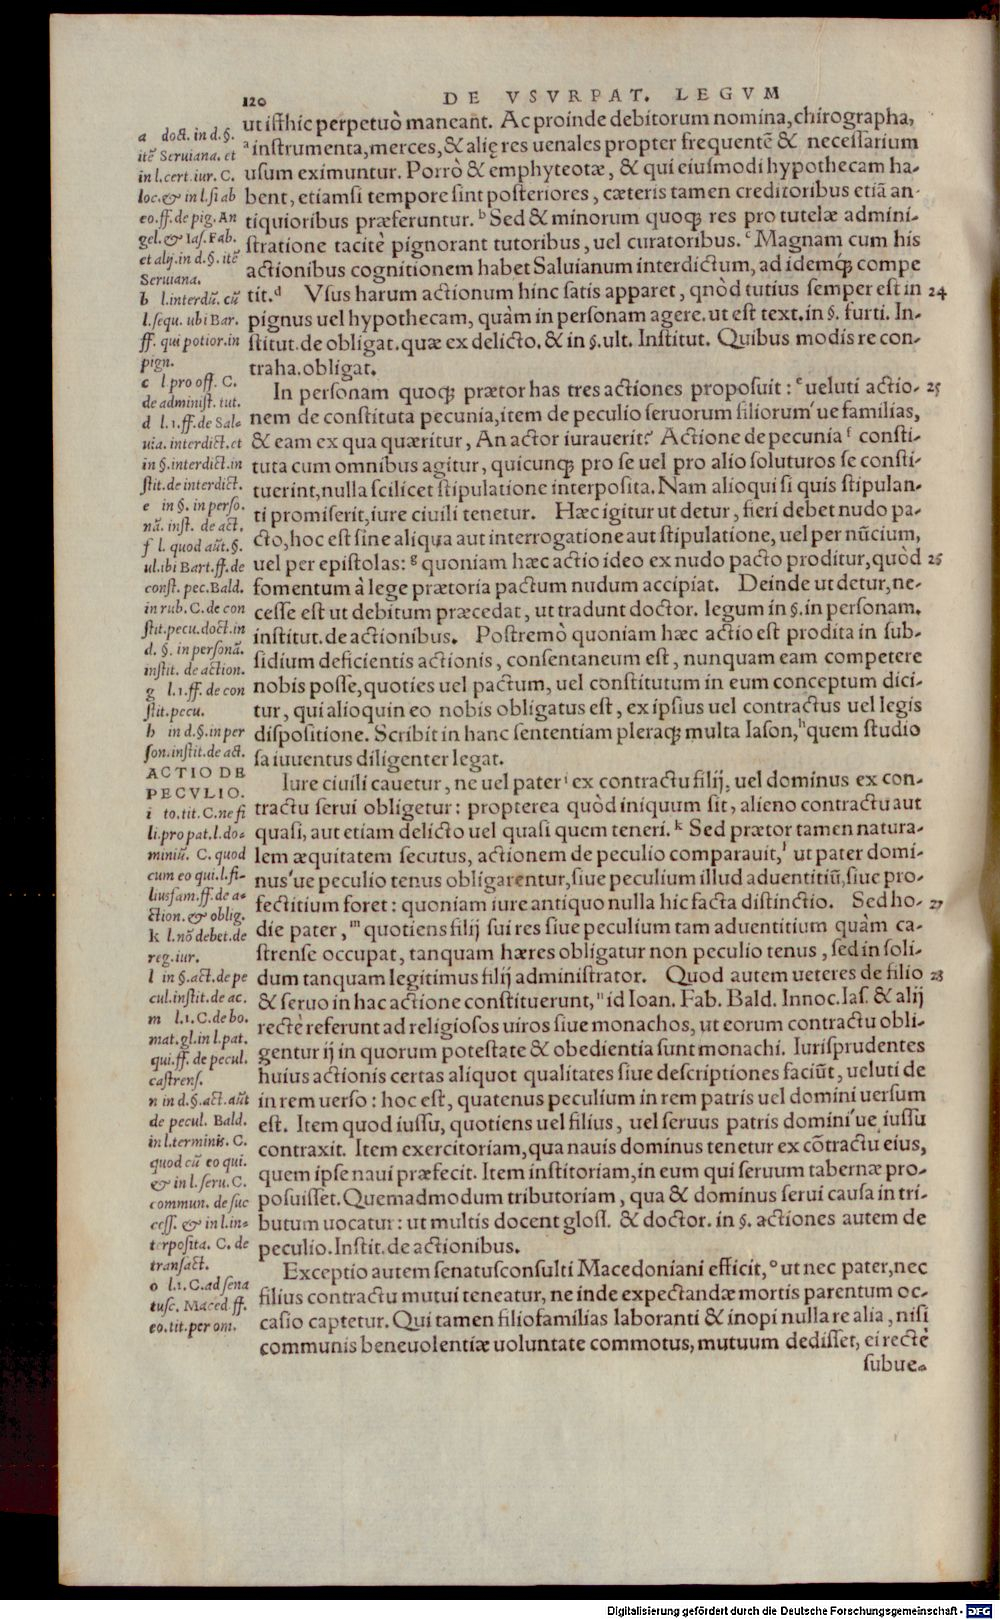 120
DE VSVRPAT. LEGVM
ut istîc perpetuò maneant. Ac proinde debitorum nomina, chirographa,
ᵃ instrumenta, merces, & alię res uenales propter frequentē & necessarium
usum eximuntur. Porrò & emphyteotæ, & qui eiusmodi hypothecam ha-
bent, etiamsi tempore sint posteriores, cæteris tamen creditoribus etiā an-
tiquioribus præferuntur. ᵇ Sed & minorum quoqȝ res pro tutelæ admini-
stratione tacitè pignorant tutoribus, uel curatoribus. ᶜ Magnam cum his
actionibus cognitionem habet Saluianum interdictum, ad idemqȝ compe
tit. ᵈ Vsus harum actionum hinc satis apparet, qnòd tutius semper est in 24
pignus uel hypothecam, quàm in personam agere. ut est text. in §. furti. In-
stitut. de obligat. quæ ex delicto. & in §. ult. Institut. Quibus modis re con-
traha. obligat.
In personam quoqȝ prætor has tres actiones proposuit: ᵉ ueluti actio- 25
nem de constituta pecunia, item de peculio seruorum filiorum'ue familias,
& eam ex qua quæritur, An actor iurauerit? Actione de pecunia ᶠ consti-
tuta cum omnibus agitur, quicunqȝ pro se uel pro alio soluturos se consti-
tuerint, nulla scilicet stipulatione interposita. Nam alioqui si quis stipulan-
ti promiserit, iure ciuili tenetur. Hæc igitur ut detur, fieri debet nudo pa-
cto, hoc est sine aliqua aut interrogatione aut stipulatione, uel per nūcium,
uel per epistolas: ᵍ quoniam hæc actio ideo ex nudo pacto proditur, quòd 26
fomentum à lege prætoria pactum nudum accipiat. Deinde ut detur, ne-
cesse est ut debitum præcedat, ut tradunt doctor. legum in §. in personam.
institut. de actionibus. Postremò quoniam hæc actio est prodita in sub-
sidium deficientis actionis, consentaneum est, nunquam eam competere
nobis posse, quoties uel pactum, uel constitutum in eum conceptum dici-
tur, qui alioquin eo nobis obligatus est, ex ipsius uel contractus uel legis
dispositione. Scribit in hanc sententiam pleraqȝ multa Iason, ʰ quem studio
sa iuuentus diligenter legat.
Iure ciuili cauetur, ne uel pater ⁱ ex contractu filij, uel dominus ex con-
tractu serui obligetur: propterea quòd iniquum sit, alieno contractu aut
quasi, aut etiam delicto uel quasi quem teneri. ᵏ Sed prætor tamen natura-
lem æquitatem secutus, actionem de peculio comparauit, ˡ ut pater domi-
nus'ue peculio tenus obligarentur, siue peculium illud aduentitiū, siue pro-
fectitium foret: quoniam iure antiquo nulla hic facta distinctio. Sed ho- 27
die pater, ᵐ quotiens filij sui res siue peculium tam aduentitium quàm ca-
strense occupat, tanquam hæres obligatur non peculio tenus, sed in soli-
dum tanquam legitimus filij administrator. Quod autem ueteres de filio 28
& seruo in hac actione constituerunt, ⁿ id Ioan. Fab. Bald. Innoc. Ias. & alij
rectè referunt ad religiosos uiros siue monachos, ut eorum contractu obli-
gentur ij in quorum potestate & obedientia sunt monachi. Iurisprudentes
huius actionis certas aliquot qualitates siue descriptiones faciūt, ueluti de
in rem uerso: hoc est, quatenus peculium in rem patris uel domini uersum
est. Item quod iussu, quotiens uel filius, uel seruus patris domini'ue iussu
contraxit. Item exercitoriam, qua nauis dominus tenetur ex cōtractu eius,
quem ipse naui præfecit. Item institoriam, in eum qui seruum tabernæ pro-
posuisset. Quemadmodum tributoriam, qua & dominus serui causa in tri-
butum uocatur: ut multis docent glos. & doctor. in §. actiones autem de
peculio. Instit. de actionibus.
Exceptio autem senatusconsulti Macedoniani efficit, ᵒ ut nec pater, nec
filius contractu mutui teneatur, ne inde expectandæ mortis parentum oc-
casio captetur. Qui tamen filiofamilias laboranti & inopi nulla re alia, nisi
communis beneuolentiæ uoluntate commotus, mutuum dedisset, ei rectè
subue-
a doct. in d. §.
itē Seruiana. et
in l. cert. iur. C.
loc. & in l. si ab
eo. ff. de pig. An
gel. & Ias. Fab.
et alij. in d. §. itē
Seruiana.
b l. interdū. cū
l. sequ. ubi Bar.
ff. qui potior. in
pign.
c l. pro off. C.
de administ. tut.
d l. 1. ff. de Sal-
uia. interdict. et
in §. interdict. in
stit. de interdict.
e in §. in perso.
nā. inst. de act.
f l. quod aūt. §.
ul. ibi Bart. ff. de
const. pec. Bald.
in rub. C. de con
stit. pecu. doct. in
d. §. in personā.
instit. de action.
g l. 1. ff. de con
stit. pecu.
h in d. §. in per
son. instit. de act.
ACTIO DE
PECVLIO.
i to. tit. C. ne fi
li. pro pat. l. do-
miniū. C. quod
cum eo qui. l. fi-
liusfam. ff. de a-
ction. & oblig.
k l. nō debet. de
reg. iur.
l in §. act. de pe
cul. instit. de ac.
m l. 1. C. de bo.
mat. gl. in l. pat.
qui. ff. de pecul.
castrens.
n in d. §. act. aūt
de pecul. Bald.
in l. terminis. C.
quod cū eo qui.
& in l. seru. C.
commun. de suc
cess. & in l. in-
terposita. C. de
transact.
o l. 1. C. ad sena
tusc. Maced. ff.
eo. tit. per om.
Digitalisierung gefördert durch die Deutsche Forschungsgemeinschaft - DFG